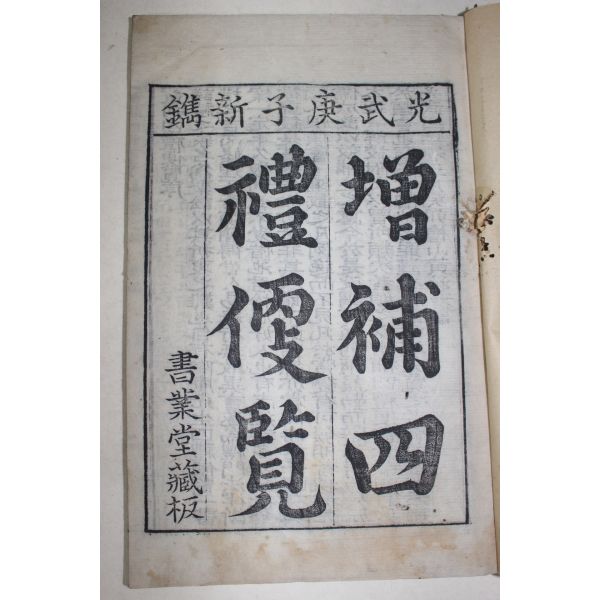 光武庚子新鐫
增補四
禮便覽
書業堂藏板